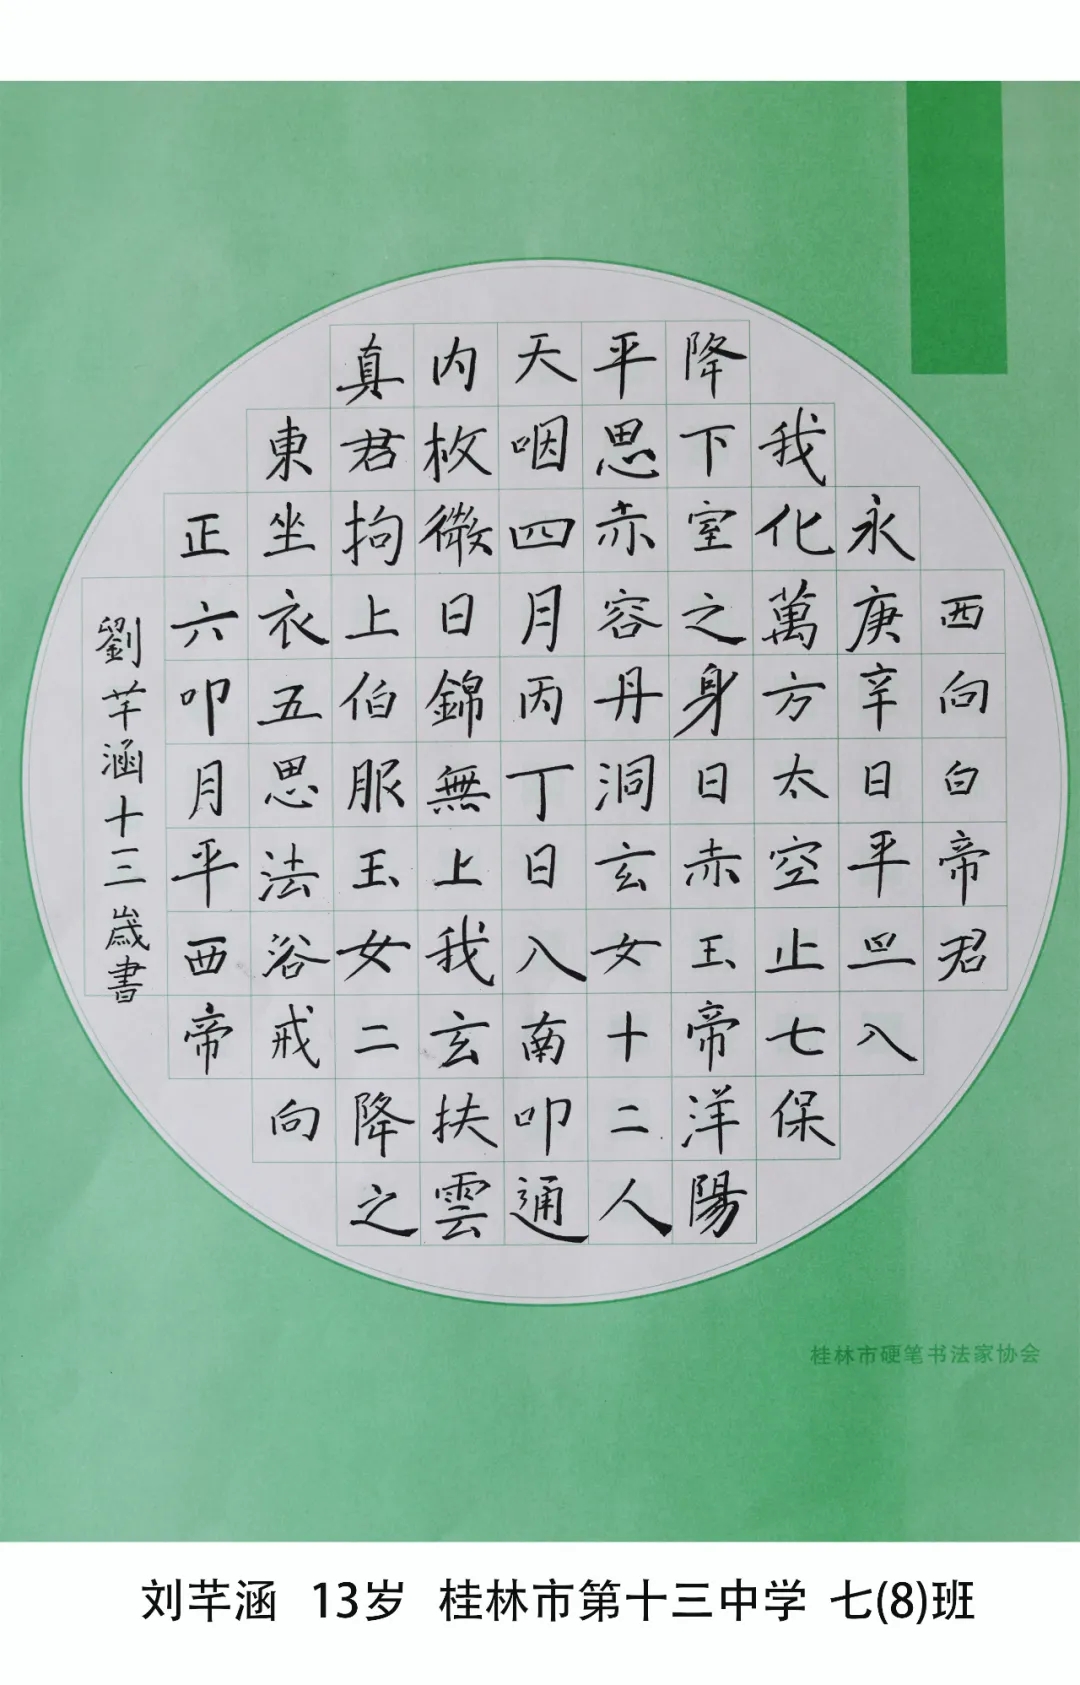 西向白帝君
永庚辛日平旦入
我化萬方太空止七保
降下室之身日赤玉帝洋陽
平思赤容丹洞玄女十二人
天咽四月丙丁日入南叩通
内枚微日錦無上我玄扶雲
真君拘上伯服玉女二降之
東坐衣五思法浴戒向
正六叩月平西帝
劉芊涵十三歲書
桂林市硬笔书法家协会
刘芊涵 13岁 桂林市第十三中学 七(8)班